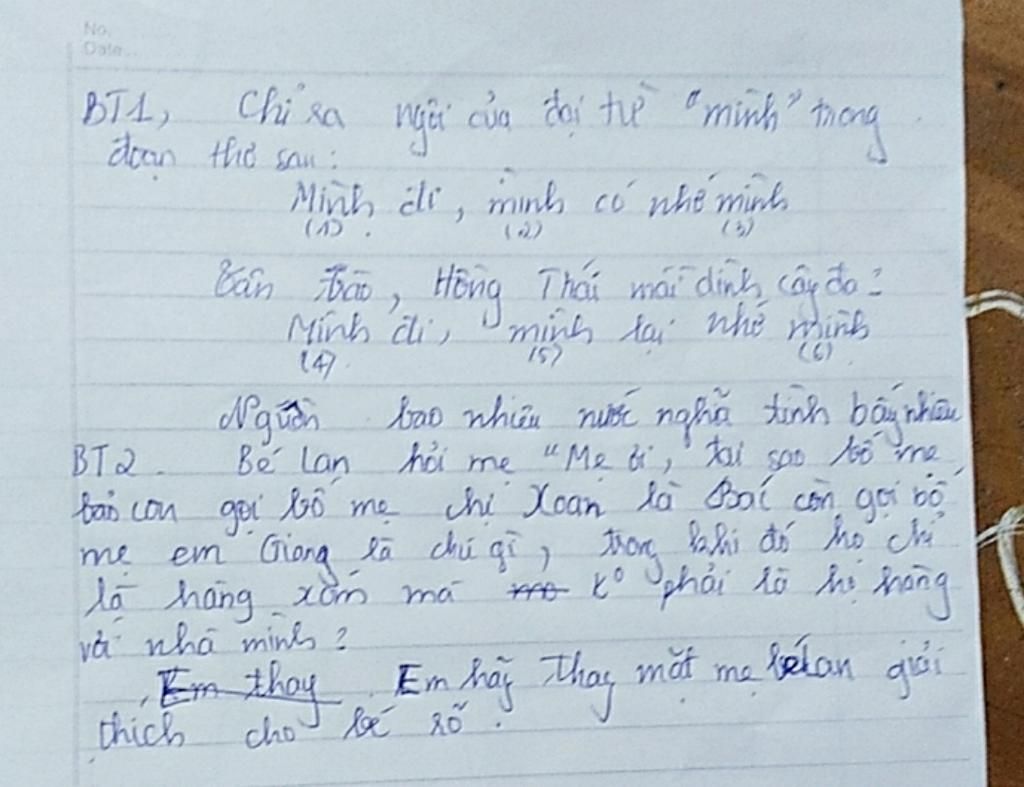 No.
Date..
BT1, Chỉ ra ngôi của đại từ "mình" trong
đoạn thơ sau:
Mình đi, mình có nhớ mình
(1). (2) (3)
Tân trào, Hồng Thái mái đình cây đa?
Mình đi, mình lại nhớ mình
(4). (5) (6)
Nguồn bao nhiêu nước nghĩa tình bấy nhiêu
BT2. Bé Lan hỏi mẹ "Mẹ ơi, tại sao bố mẹ
bảo con gọi bố mẹ chị Xoan là Bác còn gọi bố
mẹ em Giang là chú gì, trong khi đó họ chỉ
là hàng xóm mà k° phải là họ hàng
với nhà mình?
Em thay Em hãy Thay mặt mẹ bé Lan giải
thích cho bé rõ.